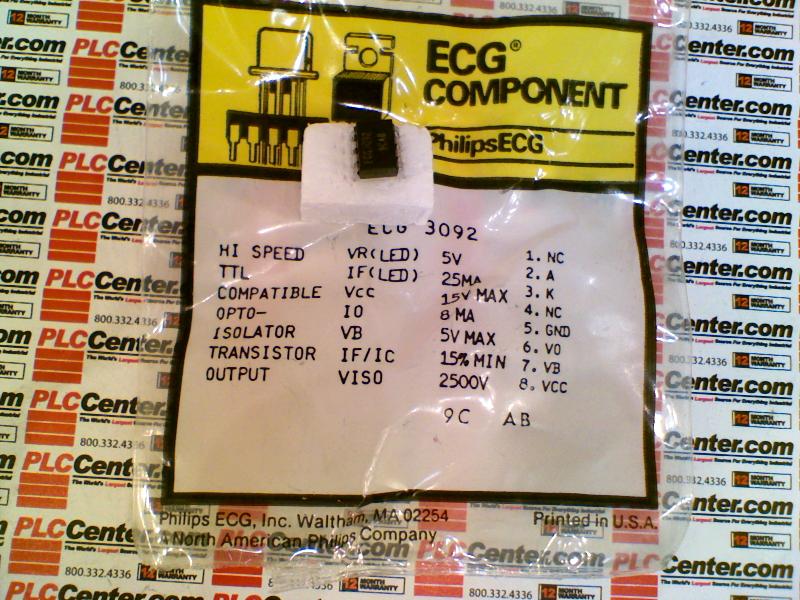 ECG®
COMPONENT
PhilipsECG
ECG 3092
HI SPEED VR(LED) 5V 1. NC
TTL IF(LED) 25MA 2. A
COMPATIBLE VCC 15V MAX 3. K
OPTO- IO 8 MA 4. NC
ISOLATOR VB 5V MAX 5. GND
TRANSISTOR IF/IC 15% MIN 6. VO
OUTPUT VISO 2500V 7. VB
8. VCC
9C AB
Philips ECG, Inc. Waltham, MA 02254
A North American Philips Company
Printed in U.S.A.
PLCCenter.com
The World's Largest Source For Everything Industrial
800.332.4336
12 MONTH WARRANTY